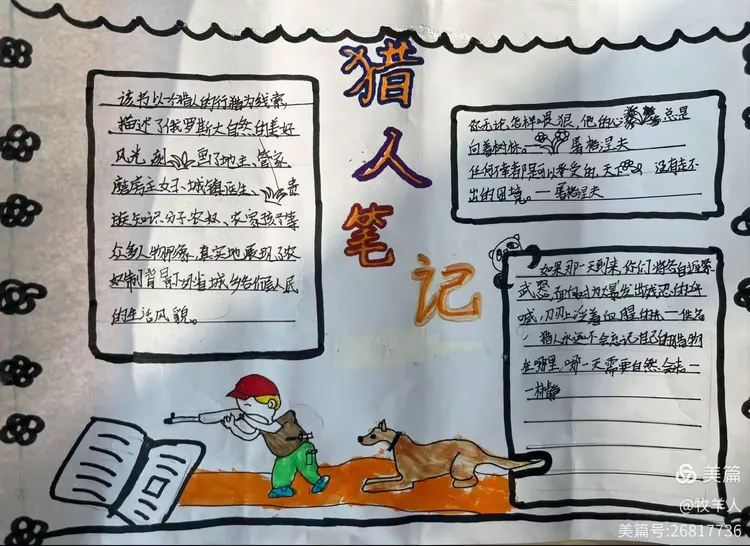 猎人笔记
该书以一个猎人的行猎为线索,
描述了俄罗斯大自然的美好
风光,刻画了地主、管家、
磨房主女子、城镇医生、贵
族知识分子、农奴、农家孩子等
众多人物形象,真实地展现了农
奴制背景下外省城乡各阶层人民
的生活风貌。
你无论怎样喂狼,他的心总是
向着树林。屠格涅夫
任何痛苦都是可以承受的,天下没有走不
出的困境。一屠格涅夫
如果那一天到来,你们将各自握紧
武器,面
喊,刀刃上
猎人永远不会忘记自己的猎物
在哪里,哪一天需要自然会去一
美篇
@牧羊人
美篇号:26817736